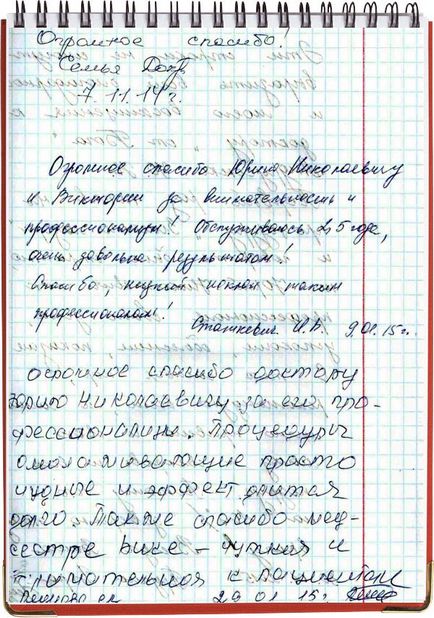 Огромное спасибо!
Семья
7.11.14г.
Огромное спасибо Юрию Николаевичу
и Виктории за внимательность и
профессионализм! Обслуживаюсь 2,5 года,
очень довольна результатом!
Спасибо, низкий поклон таким
профессионалам!
Сташкевич И.В. 9.01.15г.
Огромное спасибо доктору
Юрию Николаевичу за его про-
фессионализм. Процедуры
омолаживающие просто
чудные и эффект длится
долго. Также спасибо мед-
сестре Вике - чуткая и
внимательная к пациентам
29 01 15г.